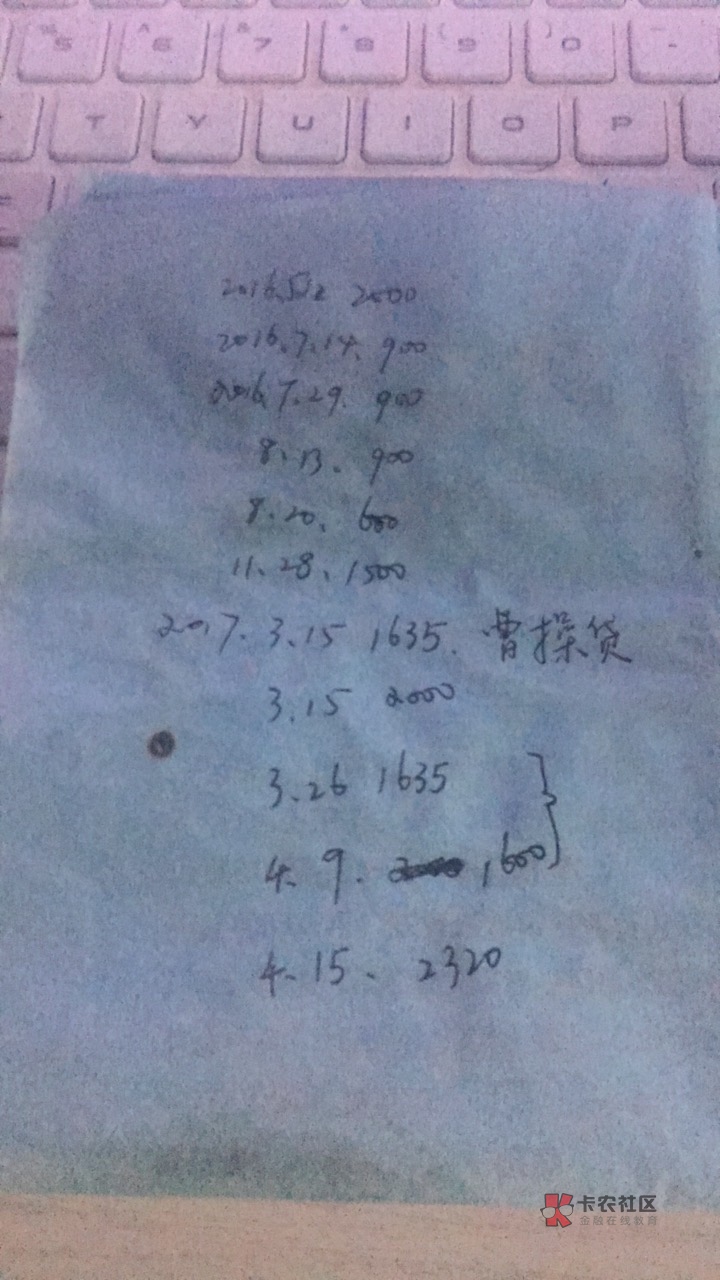 5 6 7 8 9 0 -
T Y U I O P
2016.5.12 2000
2016.7.14. 900
2016.7.29. 900
8.13. 900
8.20. 600
11.28. 1500
2017.3.15 1635. 曹操贷
3.15 2000
3.26 1635
4.9. 1600
4.15. 2320
卡农社区
金融在线教育